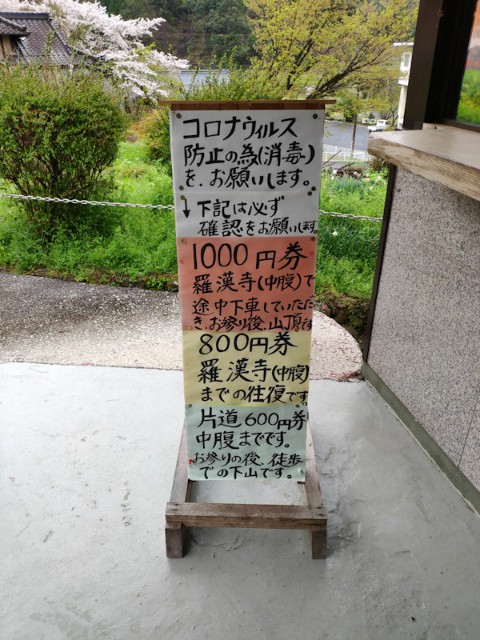 コロナウィルス
防止の為(消毒)
を、お願いします。
↓下記は必ず
確認をお願いします。
1000円券
羅漢寺(中腹)で
途中下車していただ
き、お参り後、山頂です
800円券
羅漢寺(中腹)
までの往復です。
片道600円券
中腹までです。
お参りの後、徒歩
での下山です。